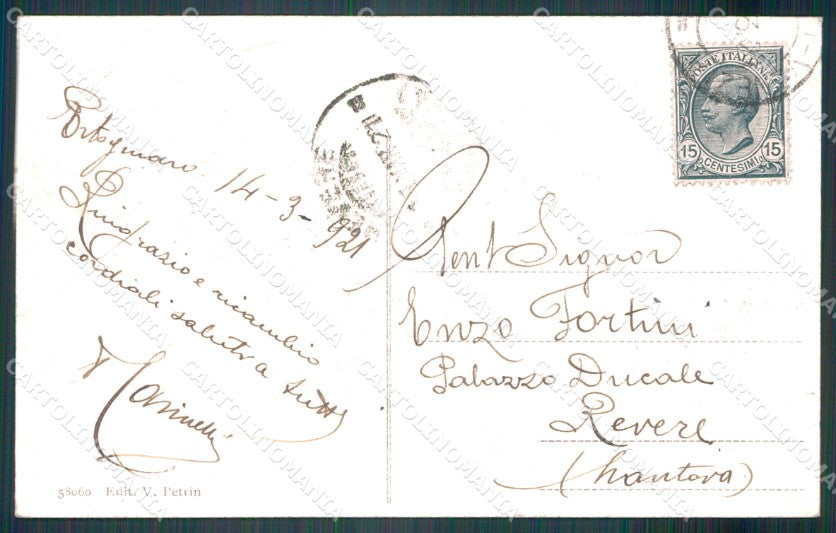 Portogruaro 14-3-921
Ringrazio e ricambio
cordiali saluti a tutti
Marinelli
Gent Signor
Enzo Fortini
Palazzo Ducale
Revere
(Mantova)
POSTE ITALIANE
15 CENTESIMI 15
58060 Edit. V. Petrin
CARTOLINOMANIA